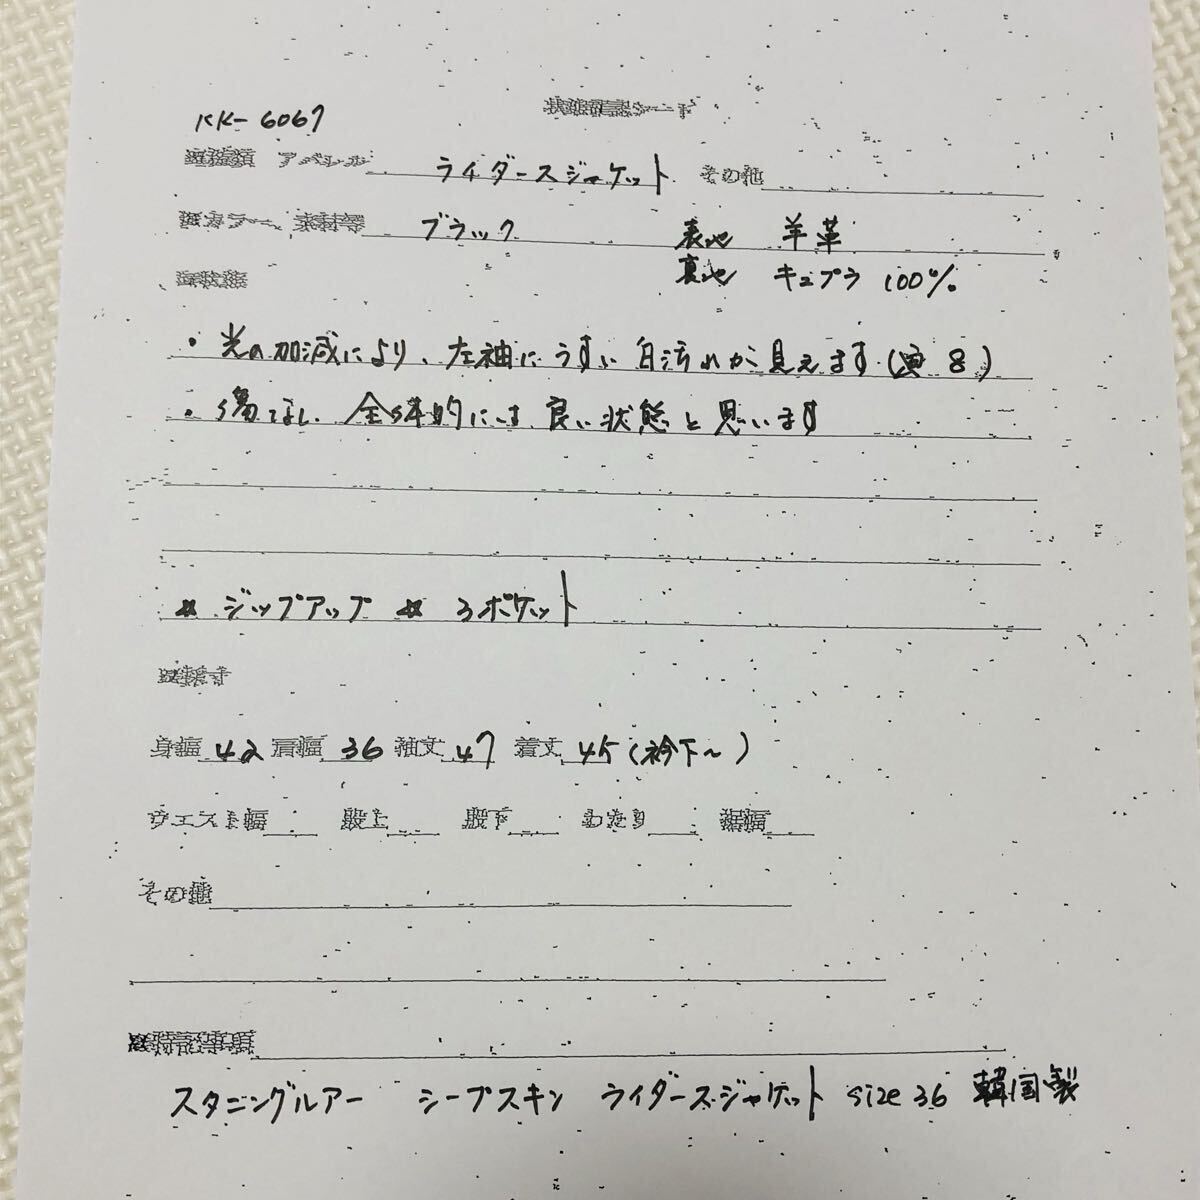 状態確認シート
KK-6067
アパレル ライダースジャケット その他
カラー、素材等 ブラック 表地 羊革
裏地 キュプラ 100%
・光の加減により、左袖にうすい白汚れが見えます(画 8)
・傷なし、全体的には良い状態と思います
☆ ジップアップ ☆ 3ポケット
身幅 42 肩幅 36 袖丈 47 着丈 45(衿下~)
ウエスト幅 股上 股下 わたり 裾幅
その他
※特記事項
スタニングルアー シープスキン ライダースジャケット size 36 韓国製